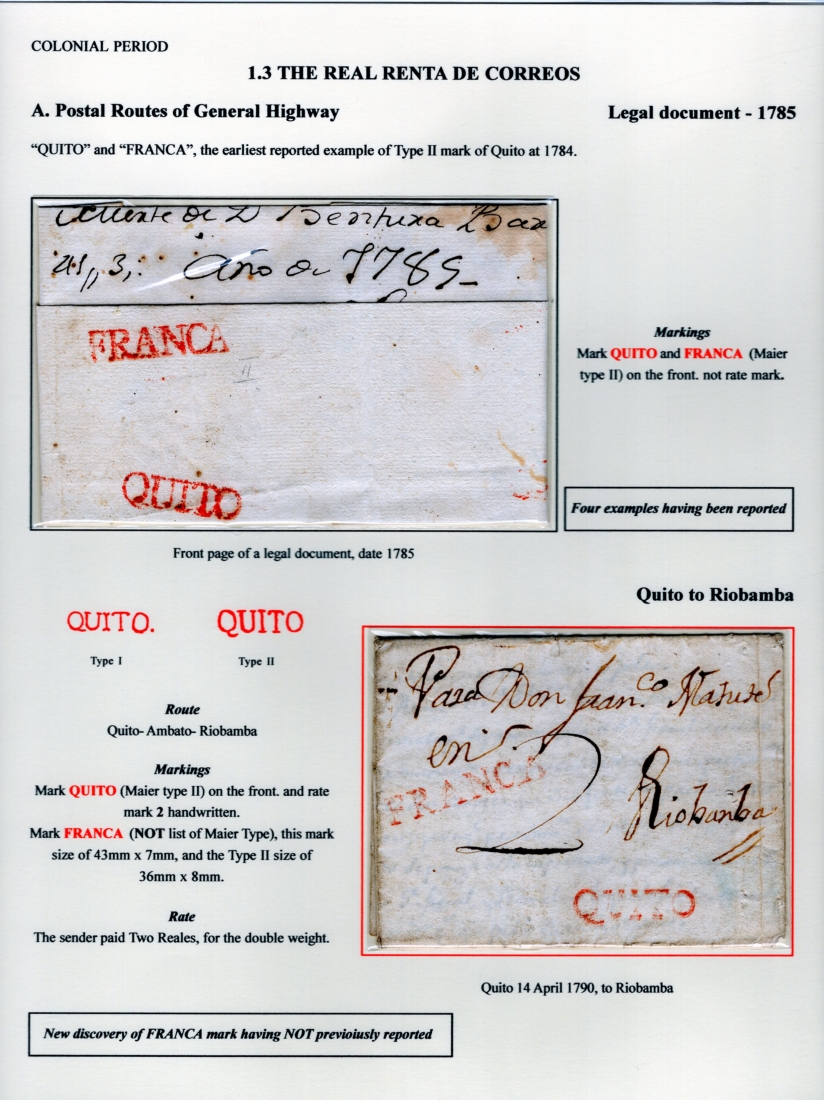 COLONIAL PERIOD
1.3 THE REAL RENTA DE CORREOS
A. Postal Routes of General Highway
Legal document - 1785
“QUITO” and “FRANCA”, the earliest reported example of Type II mark of Quito at 1784.
de D Bentura
Año de 1785
FRANCA
II
QUITO
Markings
Mark QUITO and FRANCA (Maier
type II) on the front. not rate mark.
Four examples having been reported
Front page of a legal document, date 1785
Quito to Riobamba
QUITO.
QUITO
Type I
Type II
Route
Quito- Ambato- Riobamba
Markings
Mark QUITO (Maier type II) on the front. and rate
mark 2 handwritten.
Mark FRANCA (NOT list of Maier Type), this mark
size of 43mm x 7mm, and the Type II size of
36mm x 8mm.
Rate
The sender paid Two Reales, for the double weight.
Para Don Fran.co
en
2
FRANCA
Riobamba
QUITO
Quito 14 April 1790, to Riobamba
New discovery of FRANCA mark having NOT previoiusly reported